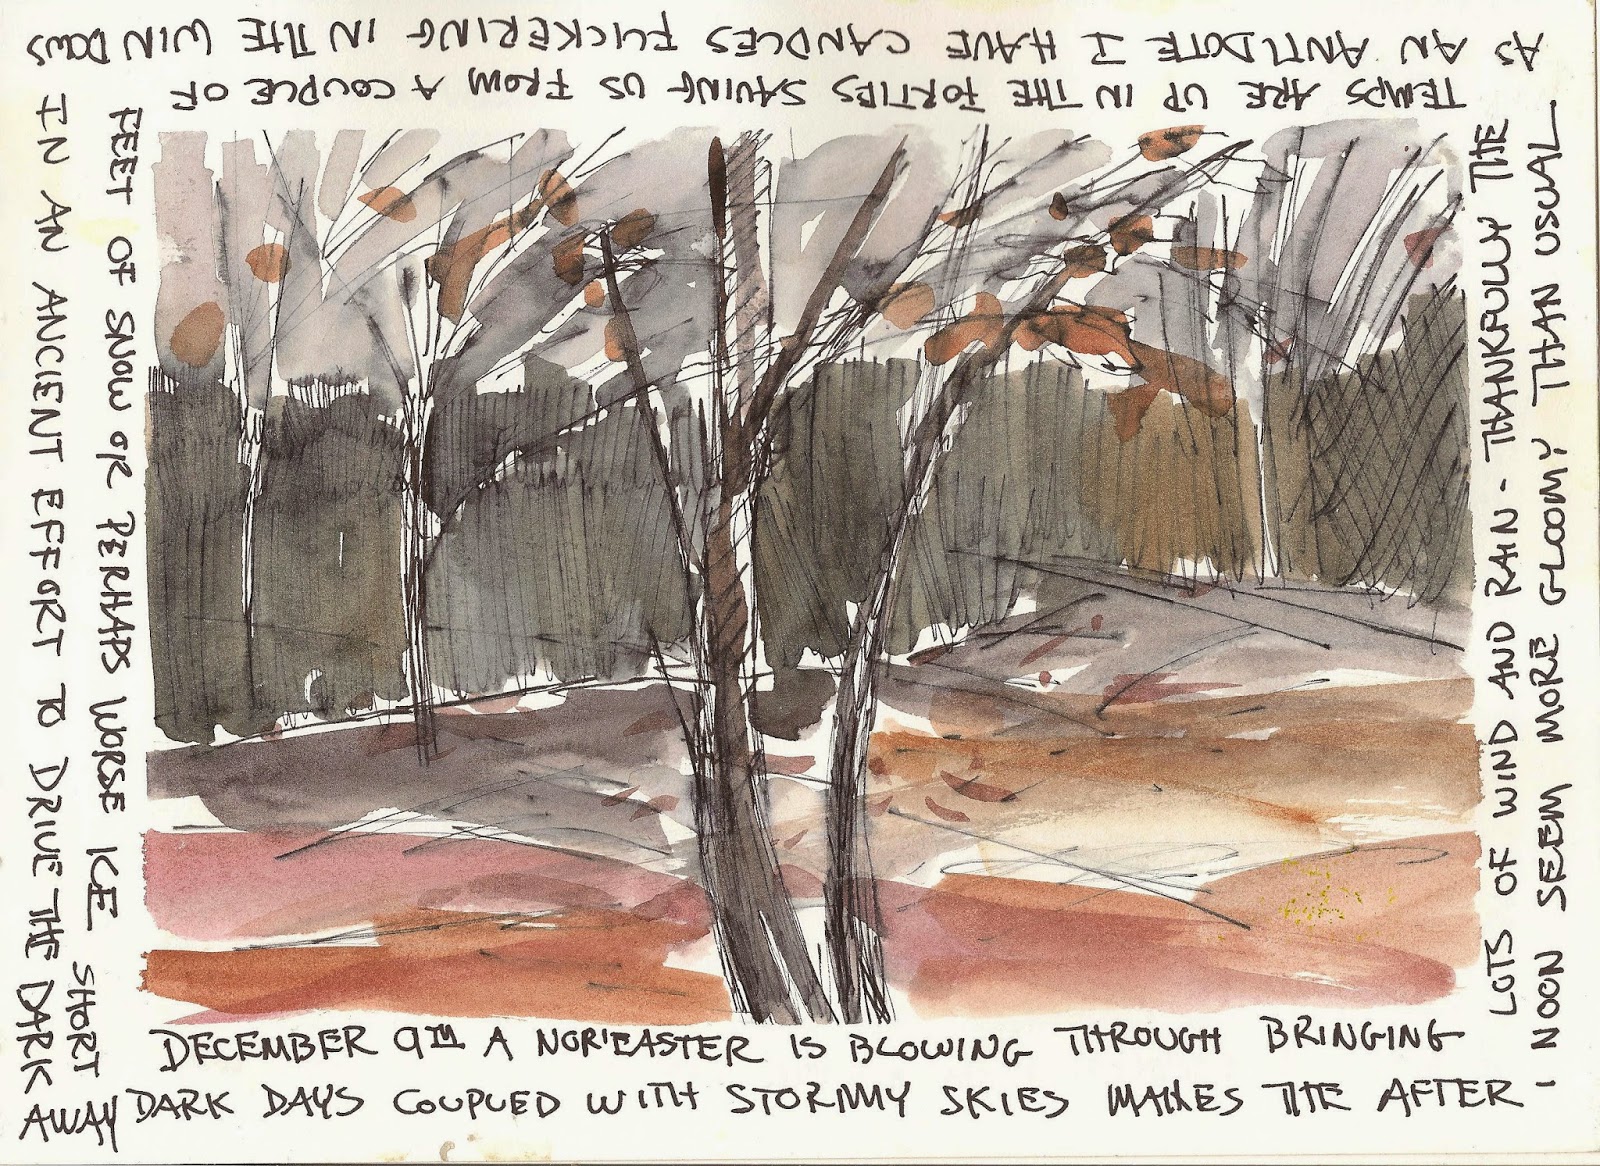 DECEMBER 9TH A NOR'EASTER IS BLOWING THROUGH BRINGING
LOTS OF WIND AND RAIN - THANKFULLY THE
TEMPS ARE UP IN THE FORTIES SAVING US FROM A COUPLE OF
FEET OF SNOW OR PERHAPS WORSE ICE SHORT
DARK DAYS COUPLED WITH STORMY SKIES MAKES THE AFTER-
NOON SEEM MORE GLOOMY THAN USUAL
AS AN ANTIDOTE I HAVE CANDLES FLICKERING IN THE WINDOWS
IN AN ANCIENT EFFORT TO DRIVE THE DARK
AWAY